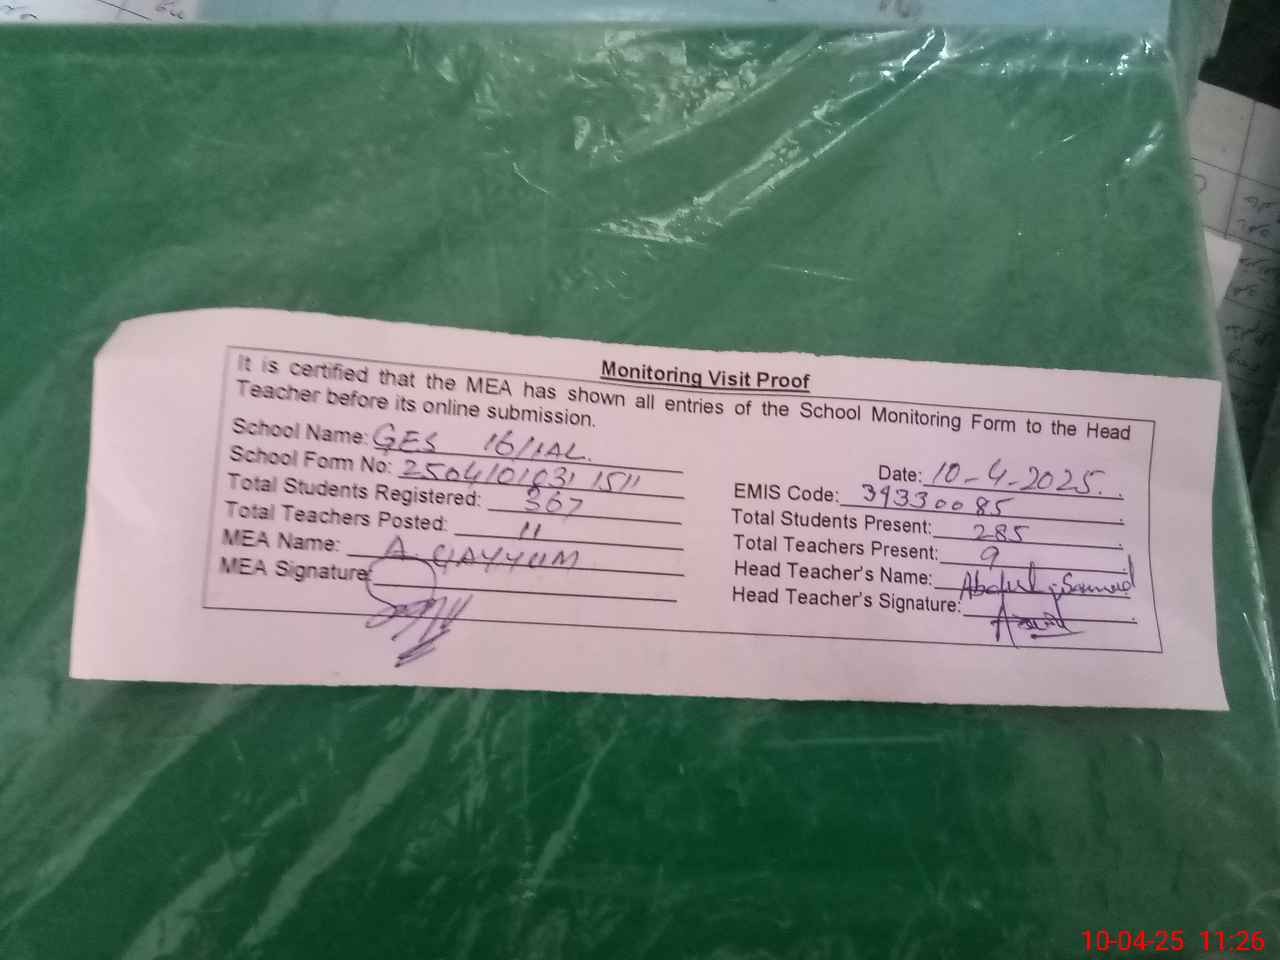 Monitoring Visit Proof
It is certified that the MEA has shown all entries of the School Monitoring Form to the Head
Teacher before its online submission.
School Name: GES 16/1AL.
Date: 10-4-2025.
School Form No: 2504101031 1511
EMIS Code: 39330085
Total Students Registered: 367
Total Students Present: 285
Total Teachers Posted: 11
Total Teachers Present: 9
MEA Name: A. QAYYUM
Head Teacher's Name: Abdul Samad
MEA Signature:
Head Teacher's Signature:
10-04-25 11:26